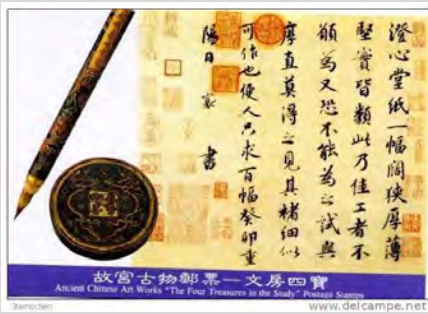 澄心堂紙一幅闊狹厚薄
堅實皆類此乃佳工者不
願為又恐不能為之試與
厚直莫得之見其楮細似
可作也便人只求百幅癸卯重
陽日 襄 書
故宮古物郵票—文房四寶
Ancient Chinese Art Works "The Four Treasures in the Study" Postage Stamps
Stampchen
www.delcampe.net